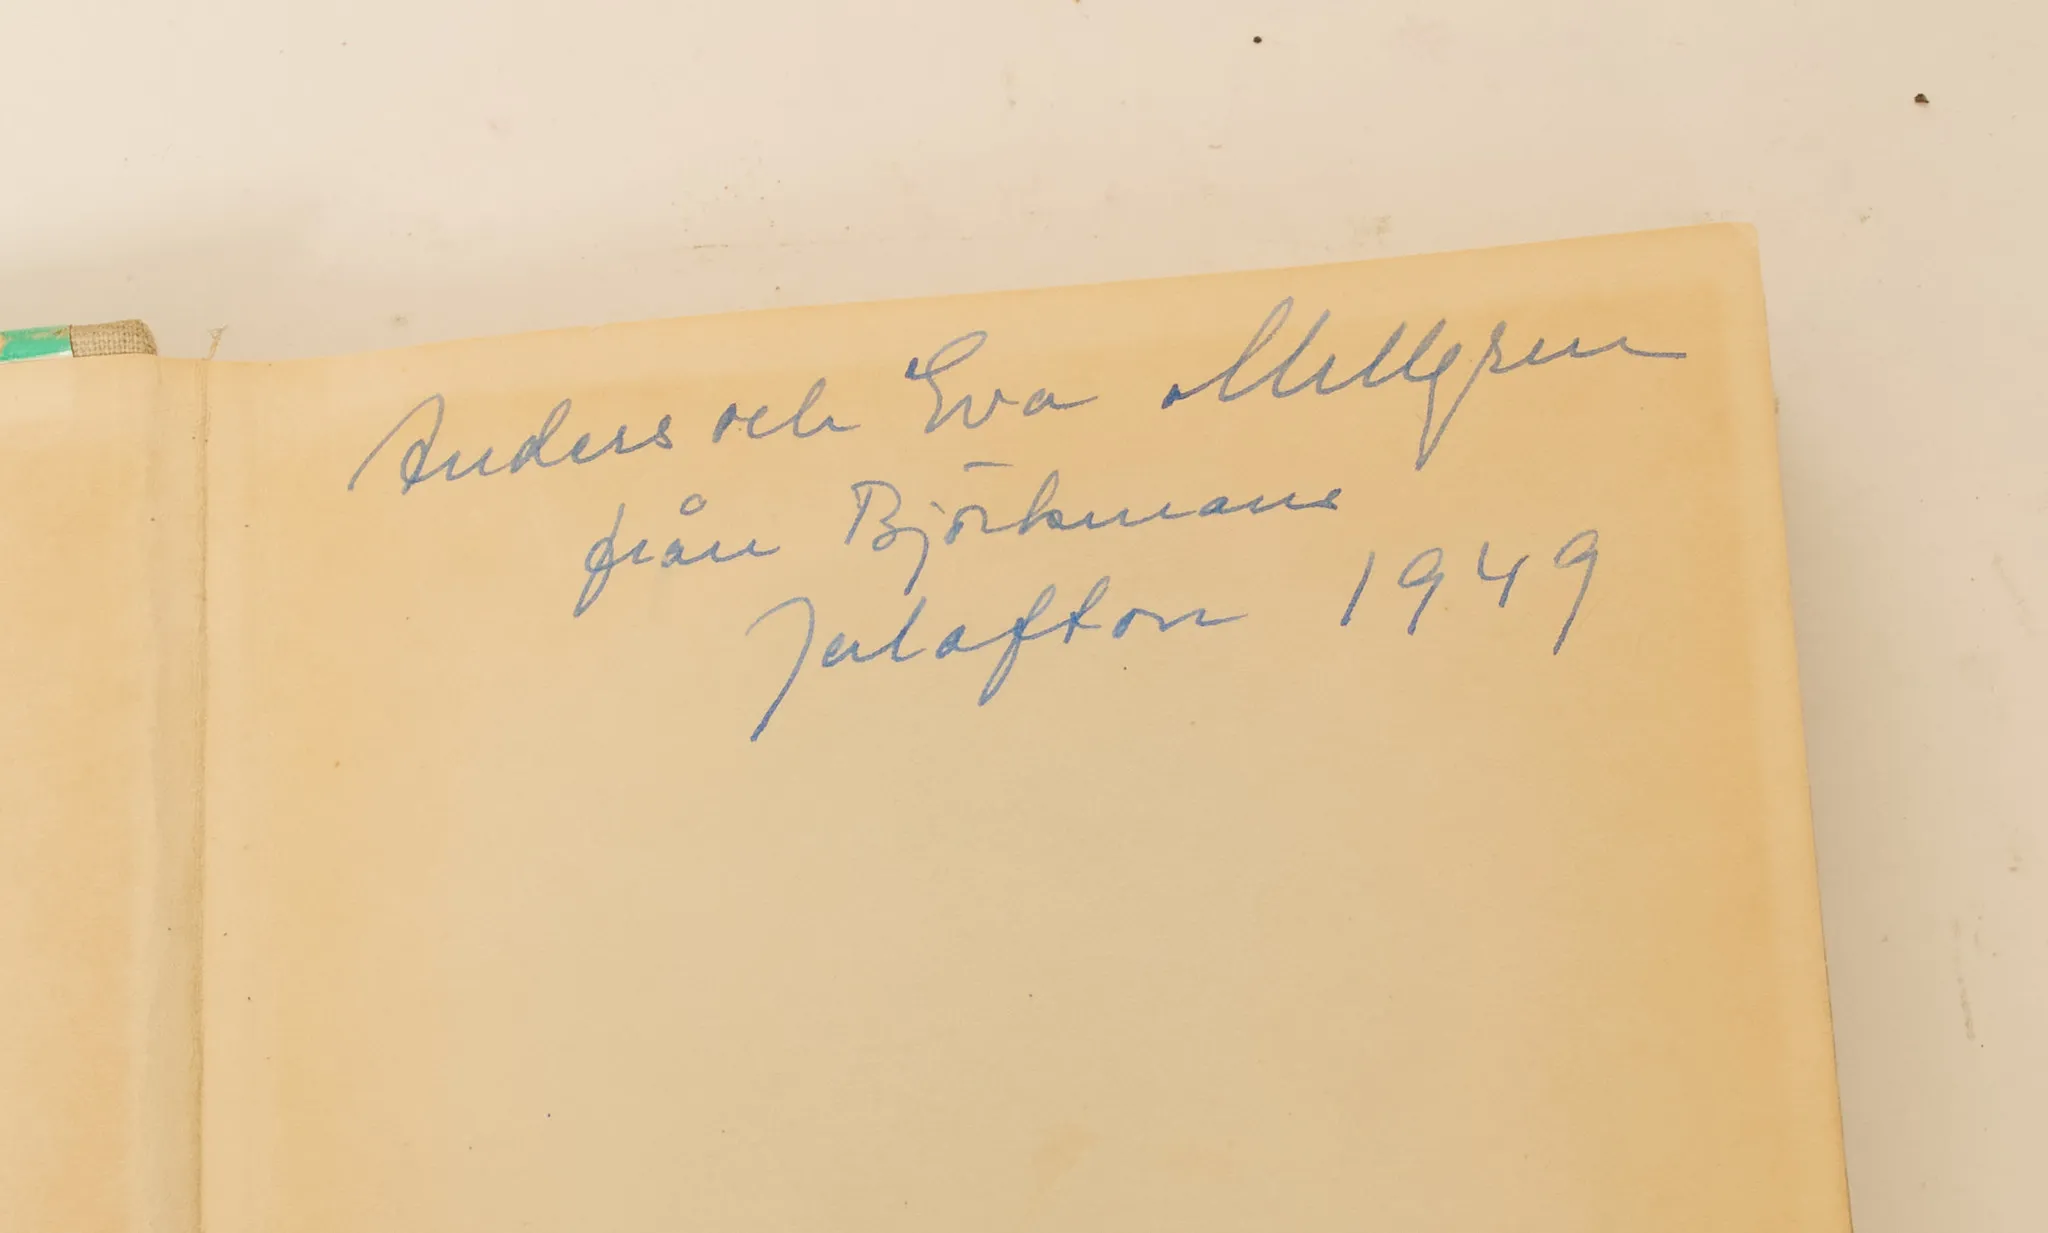 Anders och Eva Mellgren
från Björkmans
Julafton 1949